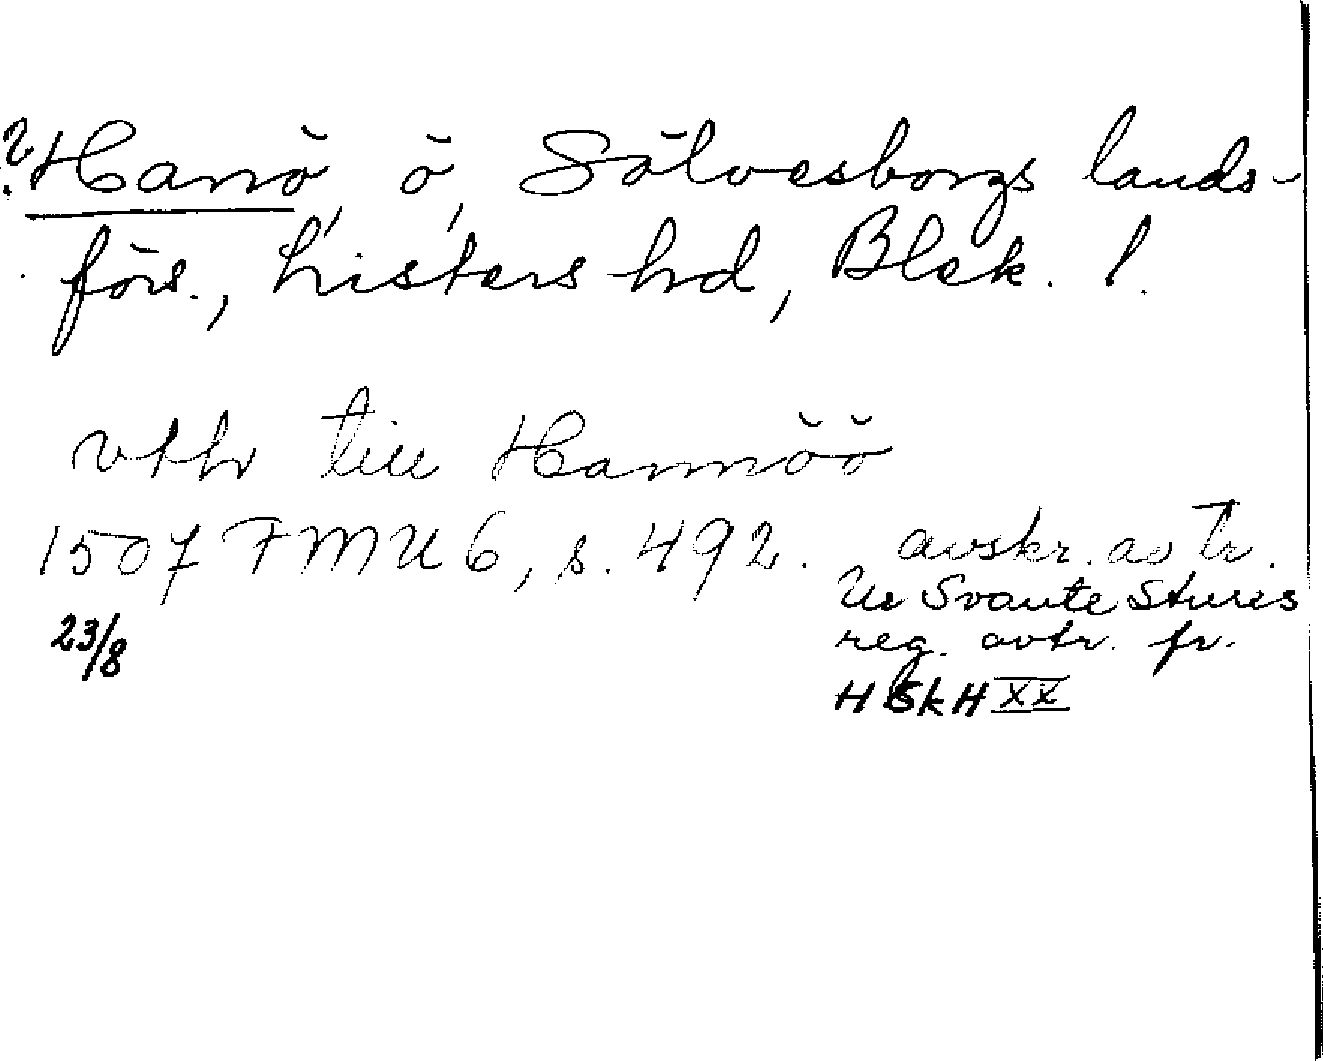 ? Hanö, ö, Sölvesborgs lands-
förs., Listers hd, Blek. l.
vthr till Hannöö
1507 FMU 6, s. 492. avskr. av tr.
23/8
Ur Svante Stures
reg. avtr. fr.
HSkH XX